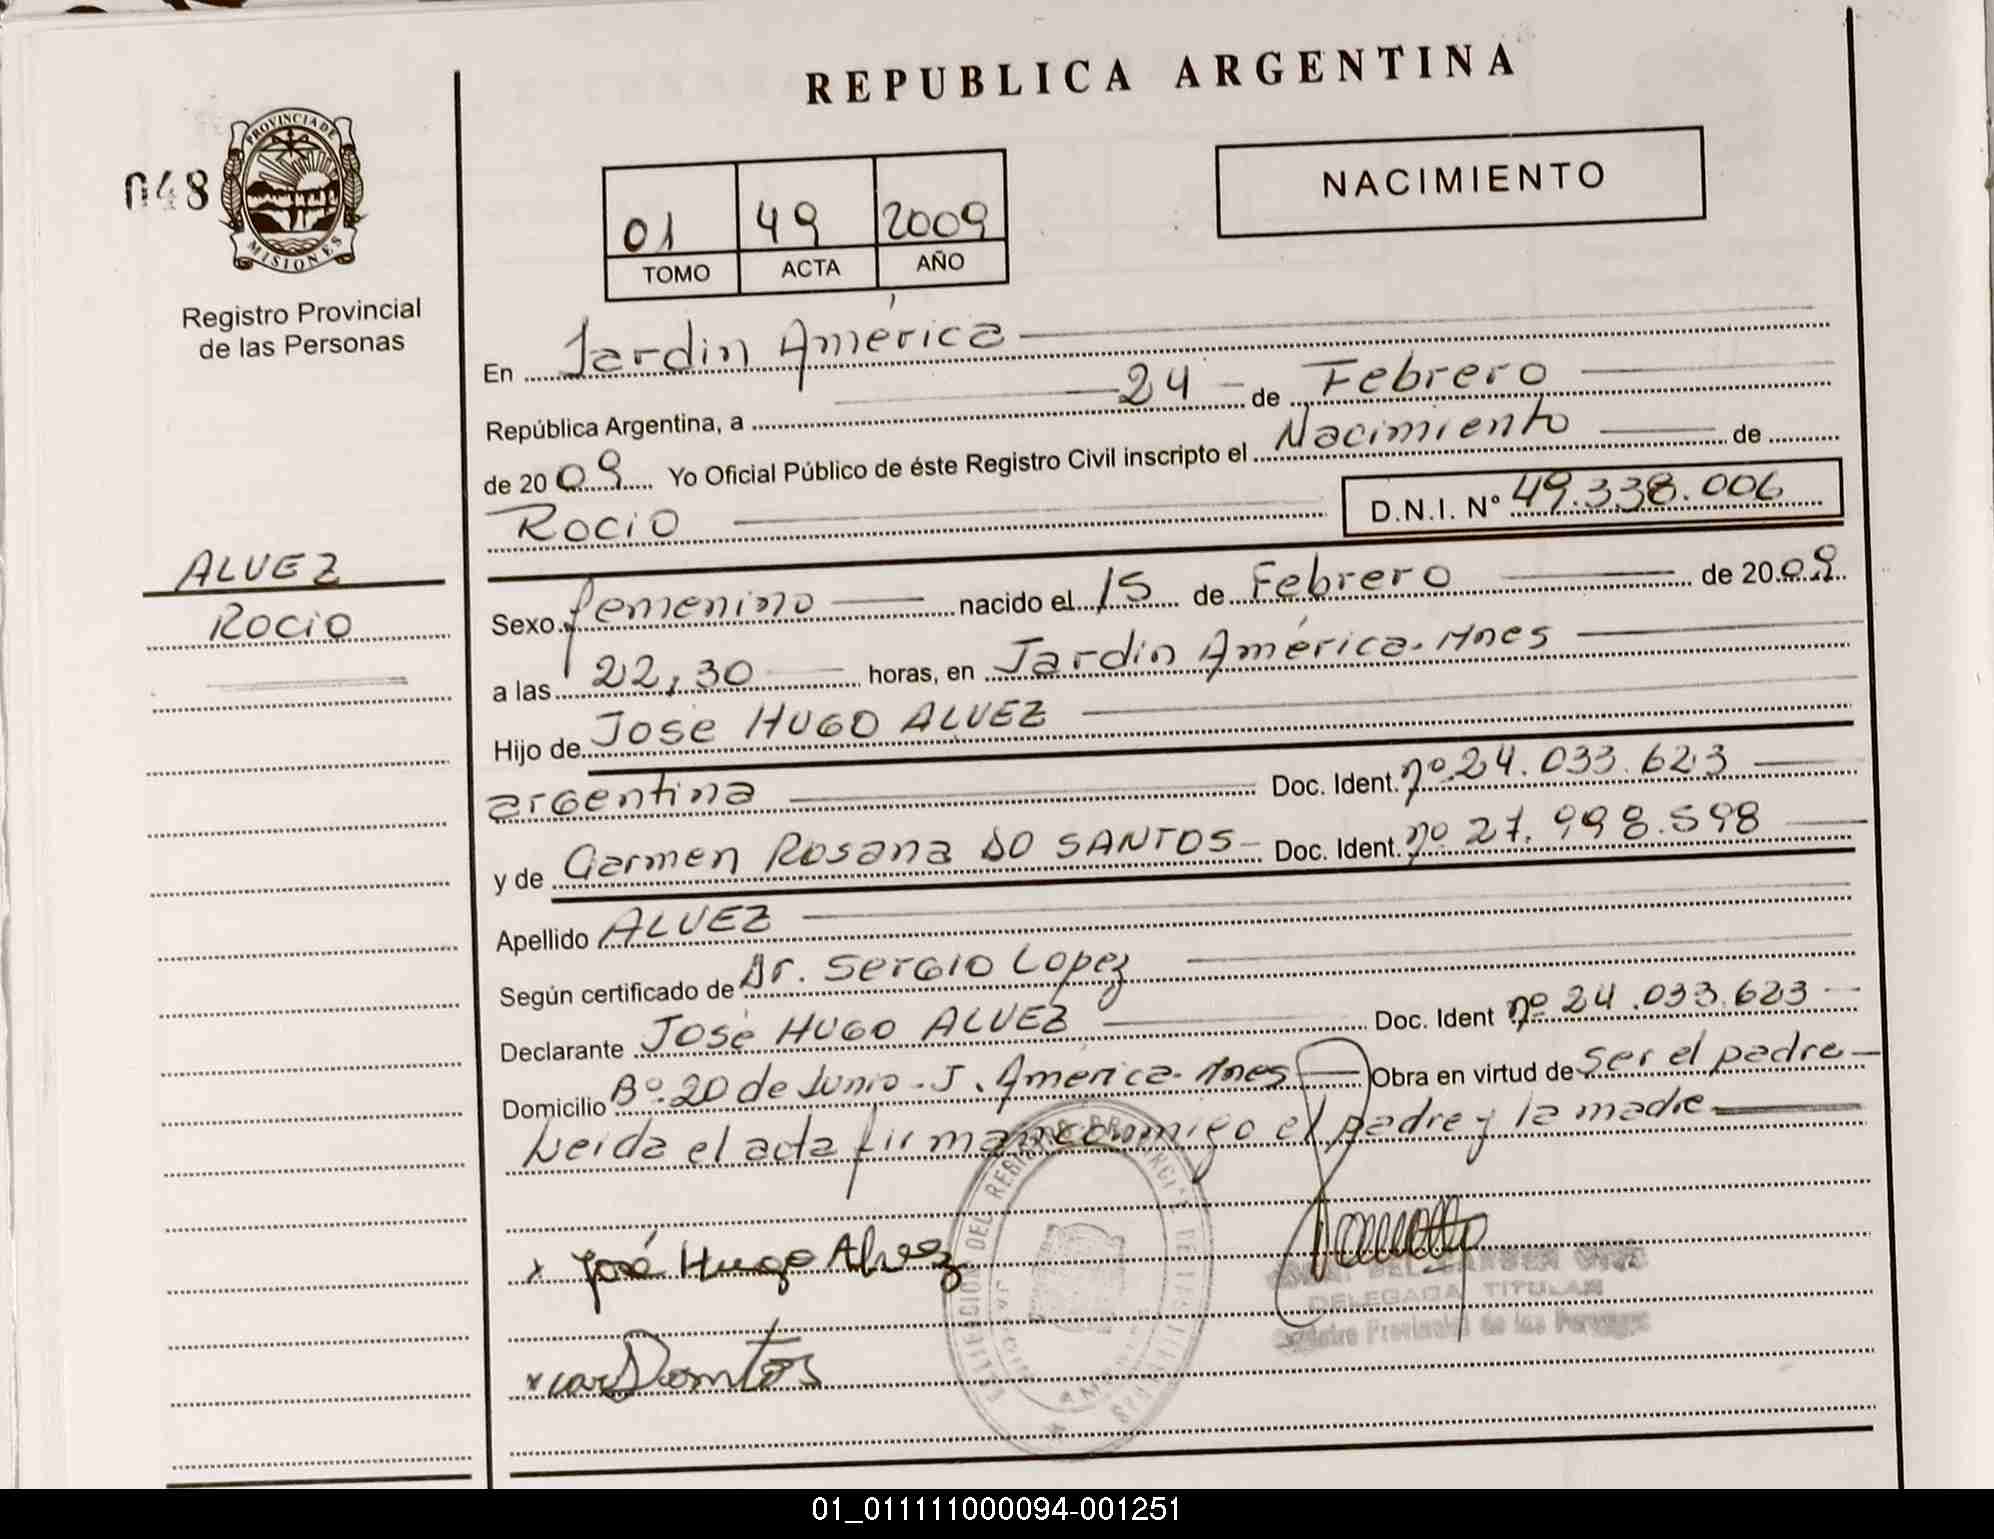 REPUBLICA ARGENTINA
048
PROVINCIA DE
MISIONES
Registro Provincial
de las Personas
NACIMIENTO
01 49 2009
TOMO ACTA AÑO
En Jardin América
República Argentina, a 24 de Febrero
de 2009 Yo Oficial Público de éste Registro Civil inscripto el Nacimiento de
Rocio D.N.I. Nº 49.338.006
ALVEZ
Rocio
Sexo femenino nacido el 15 de Febrero de 2009
a las 22,30 horas, en Jardin América-Mnes
Hijo de José HUGO ALVEZ
argentina Doc. Ident. nº 24.033.623
y de Carmen Rosana DO SANTOS Doc. Ident. nº 27.998.598
Apellido ALVEZ
Según certificado de Dr. Sergio Lopez
Declarante José HUGO ALVEZ Doc. Ident nº 24.033.623
Domicilio Bº.20 de Junio-J. América-Mnes Obra en virtud de Ser el padre
Leida el acta firman conmigo el padre y la madre
x José Hugo Alvez
DEL CARMEN
DELEGADA TITULAR
Registro Provincial de las Personas
01_011111000094-001251